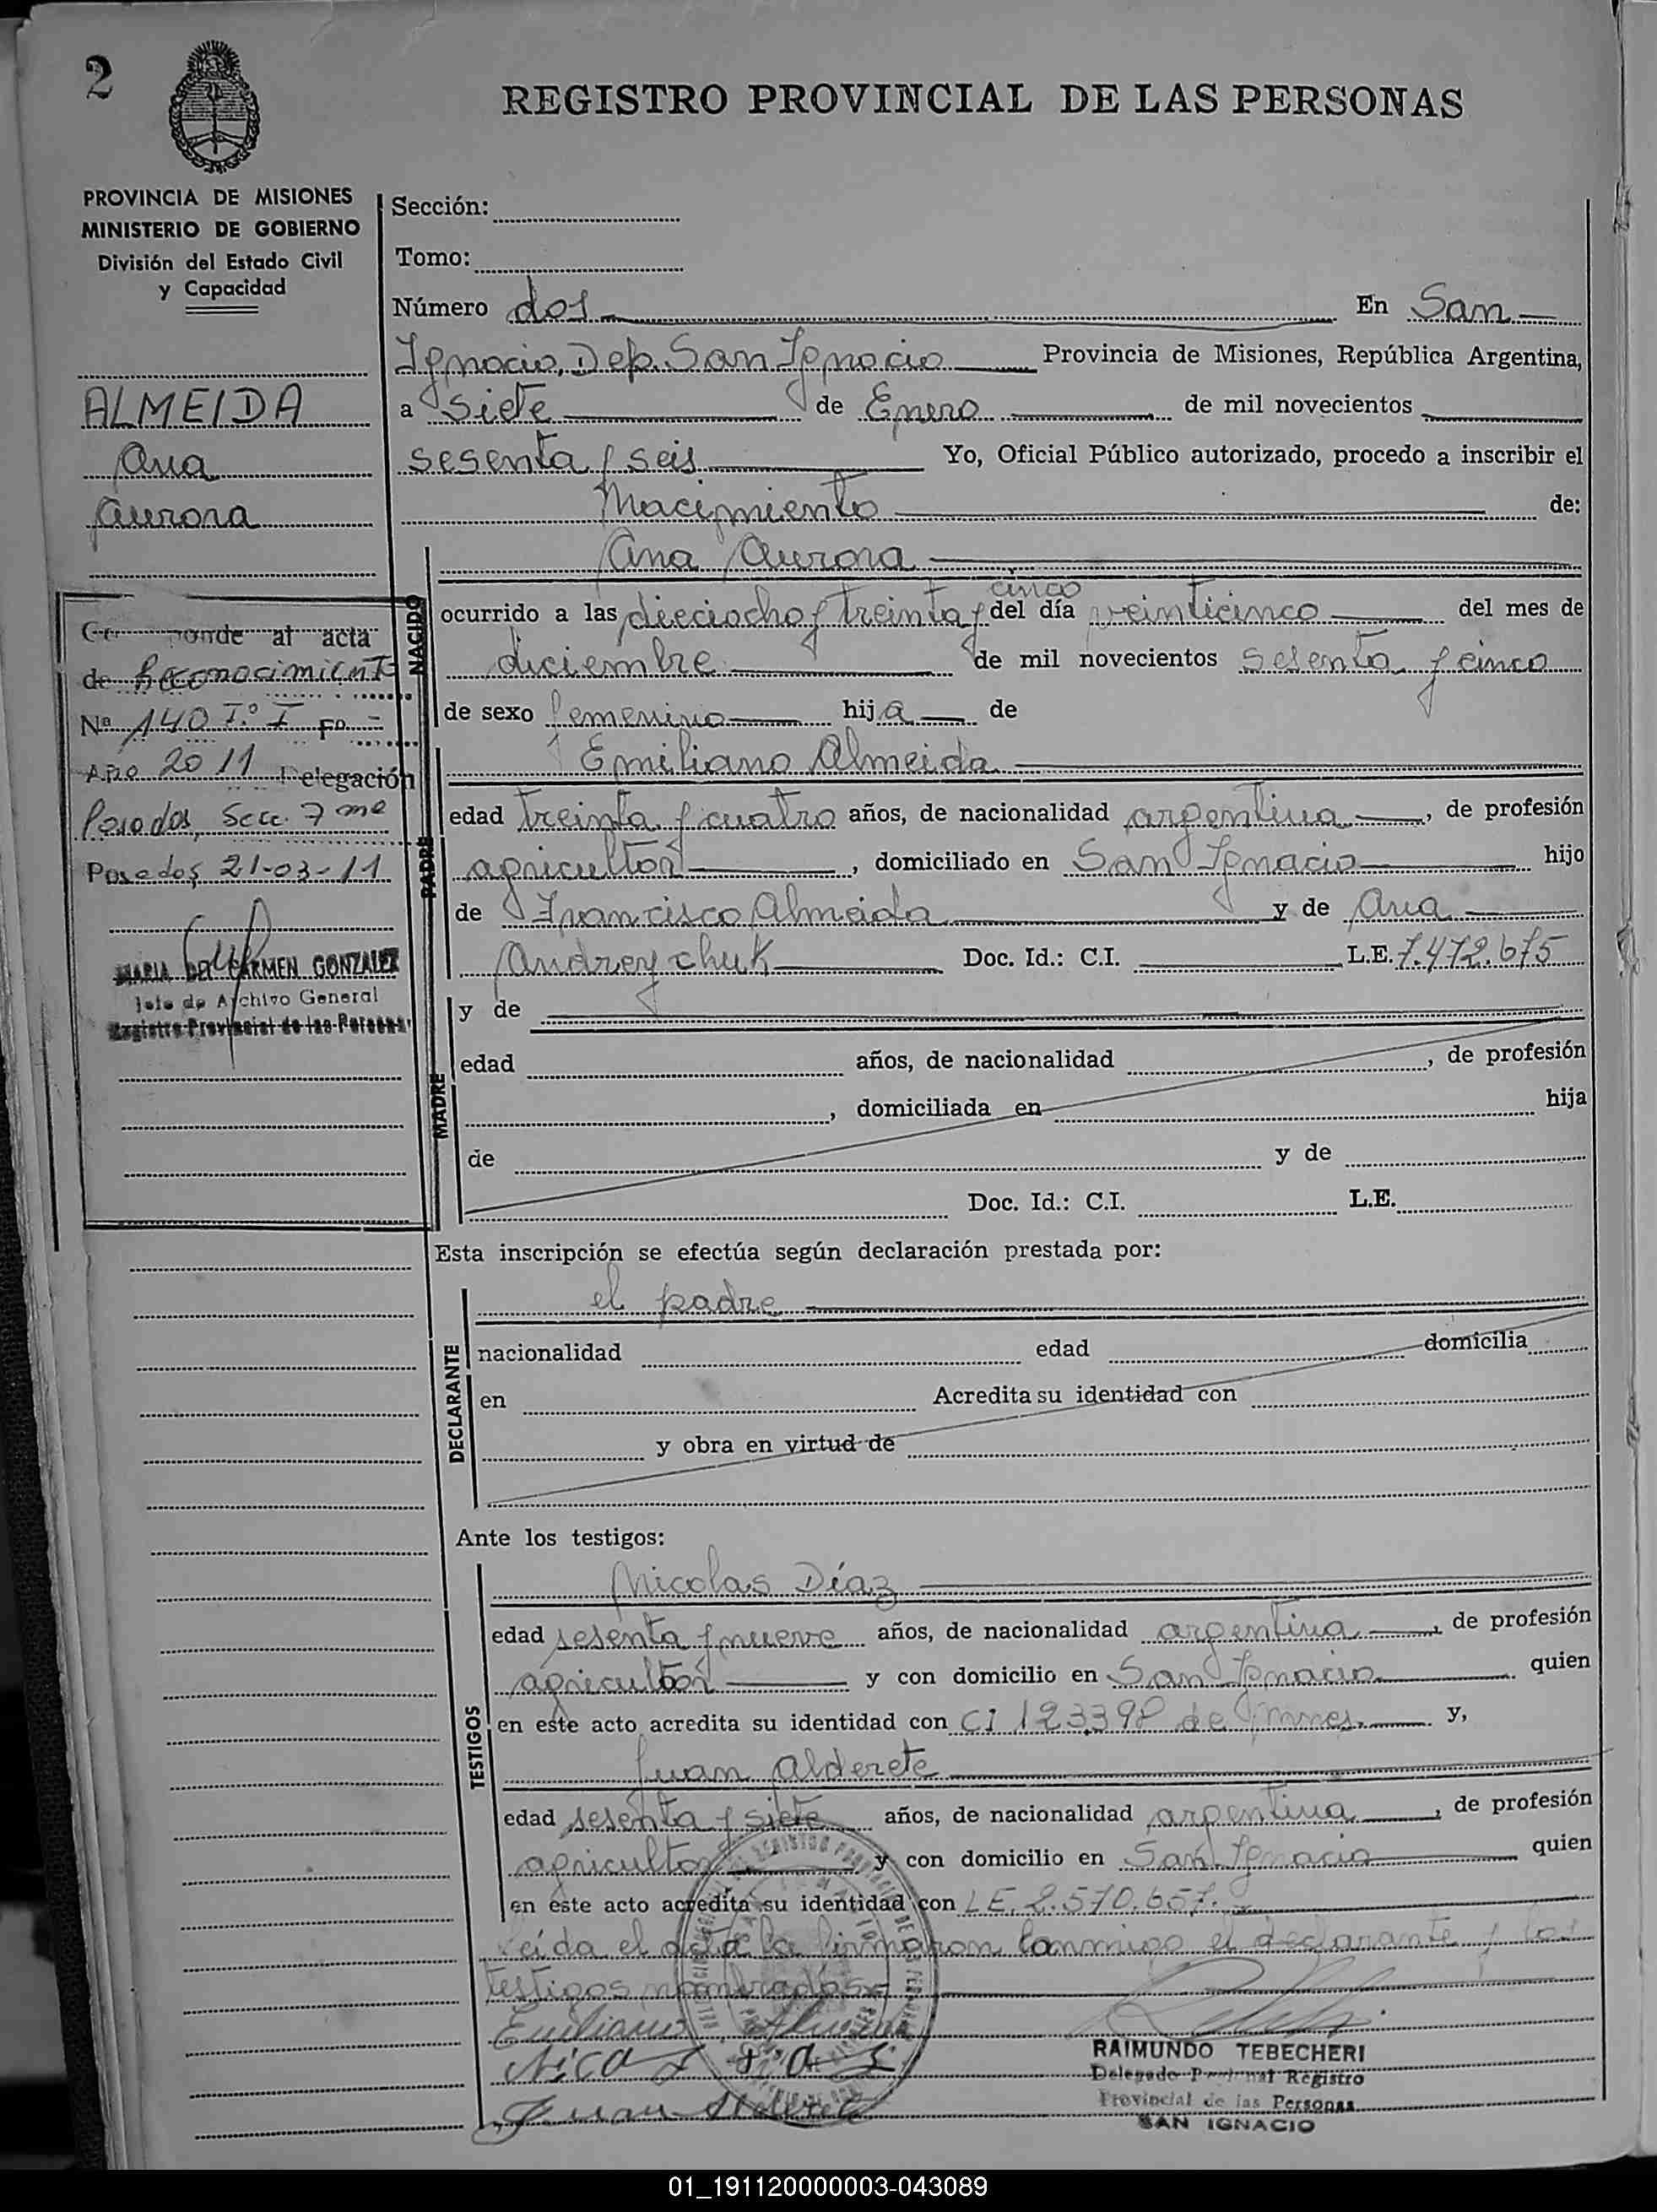 2
REGISTRO PROVINCIAL DE LAS PERSONAS
PROVINCIA DE MISIONES
MINISTERIO DE GOBIERNO
División del Estado Civil
y Capacidad
ALMEIDA
Ana
Aurora
Corresponde al acta
de Reconocimiento
Nº 140 Tº I Fº -
Año 2011 Delegación
Posadas, Secc. 7 ma
Posadas 21-03-11
MARIA DEL CARMEN GONZALEZ
Jefe de Archivo General
Registro Provincial de las Personas
Sección:
Tomo:
Número dos En San
Ignacio, Dep. San Ignacio Provincia de Misiones, República Argentina,
a siete de Enero de mil novecientos
sesenta y seis Yo, Oficial Público autorizado, procedo a inscribir el
Nacimiento de:
NACIDO
Ana Aurora
cinco
ocurrido a las dieciocho y treinta y del día veinticinco del mes de
diciembre de mil novecientos sesenta y cinco
de sexo femenino hija de
PADRE
Emiliano Almeida
edad treinta y cuatro años, de nacionalidad argentina, de profesión
agricultor, domiciliado en San Ignacio hijo
de Francisco Almeida y de Ana
Andreychuk Doc. Id.: C.I. L.E. 7.472.675
MADRE
y de
edad años, de nacionalidad , de profesión
, domiciliada en hija
de y de
Doc. Id.: C.I. L.E.
Esta inscripción se efectúa según declaración prestada por:
DECLARANTE
el padre
nacionalidad edad domicilia
en Acredita su identidad con
y obra en virtud de
Ante los testigos:
TESTIGOS
Nicolas Díaz
edad sesenta y nueve años, de nacionalidad argentina, de profesión
agricultor y con domicilio en San Ignacio quien
en este acto acredita su identidad con CI 123.398 de Mnes. y,
Juan Alderete
edad sesenta y siete años, de nacionalidad argentina, de profesión
agricultor y con domicilio en San Ignacio quien
en este acto acredita su identidad con LE. 2.570.657.
Leída el acta la firmaron conmigo el declarante y los
testigos nombrados
Emiliano Almeida
Juan Alderete
RAIMUNDO TEBECHERI
Delegado Registro
Provincial de las Personas
SAN IGNACIO
01_191120000003-043089